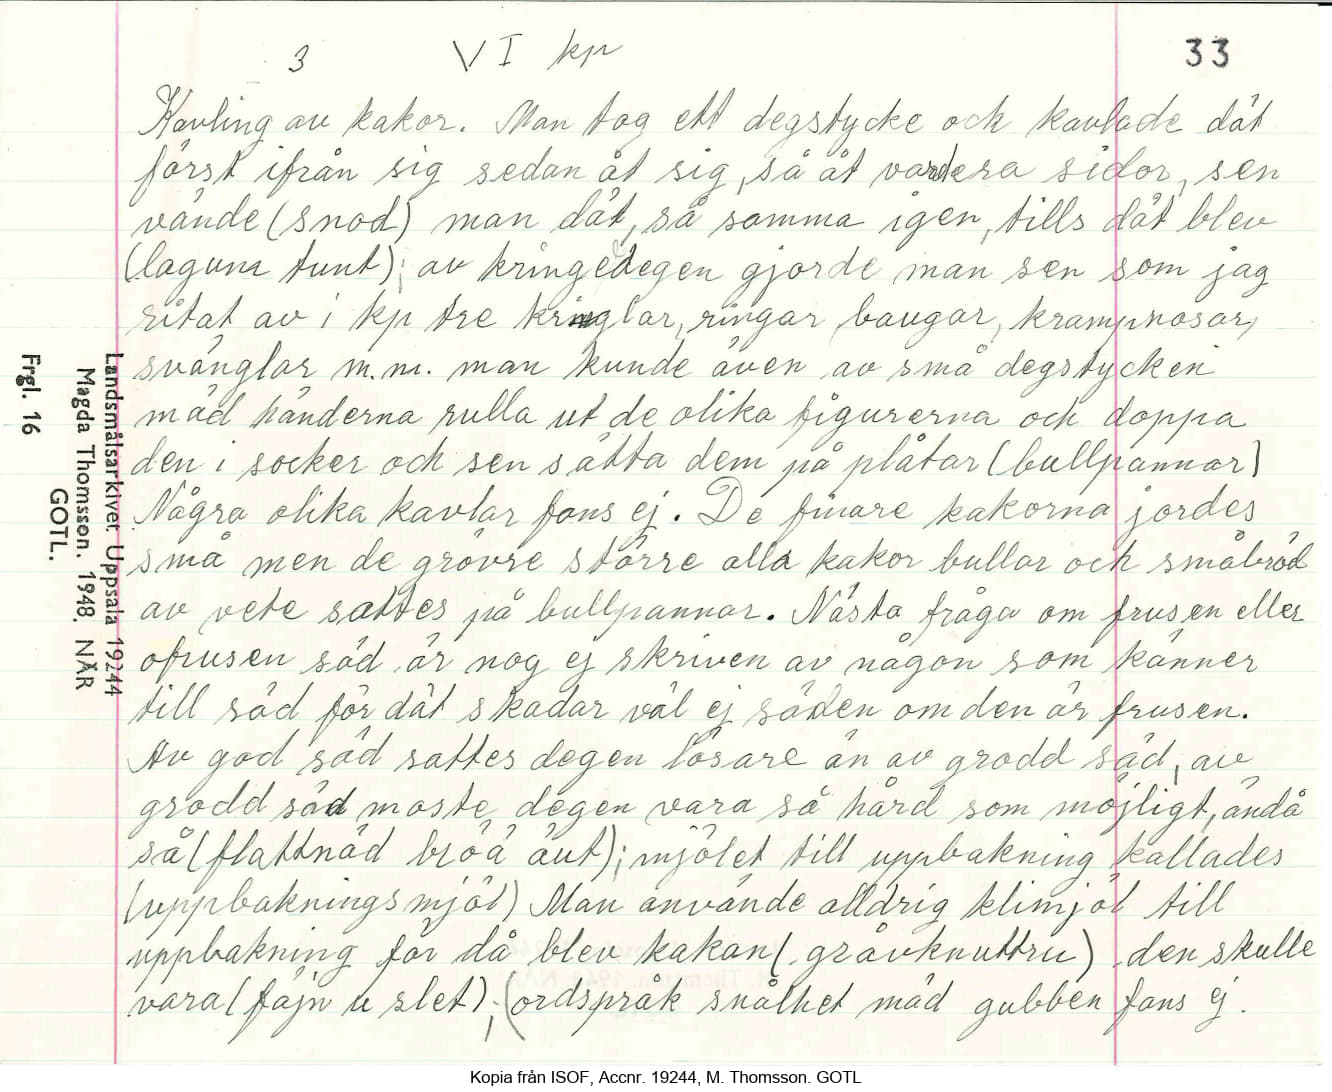 3 VI kp 33
Kavling av kakor. Man tog ett degstycke och kavlade dät
först ifrån sig sedan åt sig, så åt vardera sidor, sen
vände (snod) man dät, så samma igen, tills dät blev
(laguna tunt); av kringedegen gjorde man sen som jag
ritat av i kp tre kringlar, ringar, baugar, krampnosar,
svänglar m.m. man kunde även av små degstycken
mäd händerna rulla ut de olika figurerna och doppa
den i socker och sen sätta dem på plåtar (bullpannar)
Några olika kavlar fans ej. De finare kakorna jordes
små men de grövre större alla kakor bullar och småbröd
av vete sattes på bullpannar. Nästa fråga om frusen eller
ofrusen säd är nog ej skriven av någon som känner
till säd för dät skadar väl ej säden om den är frusen.
Av god säd sattes degen lösare än av grodd säd, av
grodd säd moste degen vara så hård som möjligt, ändå
så (flattnäd bröä äut); mjölet till uppbakning kallades
(uppbakningsmjöl) Man använde alldrig klimjöl till
uppbakning för då blev kakan (gråvknuttru) den skulle
vara (fäjn u slet); (ordspråk snålhet mäd gubben fans ej.
Landsmålsarkivet Uppsala 19244
Magda Thomsson. 1948. NÄR
GOTL.
Frgl. 16
Kopia från ISOF, Accnr. 19244, M. Thomsson. GOTL